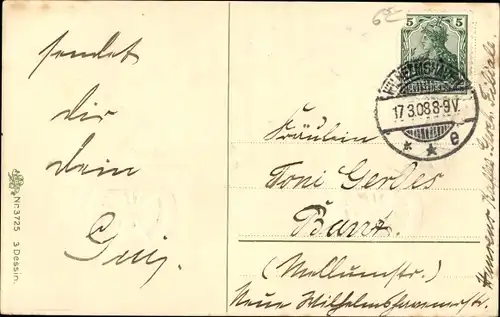 sendet
dir
dein
Nr. 3725 3 Dessin.
6
5 5
WILHELMSHAVEN
17.3.08.8-9V.
* * e
Fräulein
Toni Gerbes
Bant.
(Mellumstr.)
Neue Wilhelmshavenerstr.